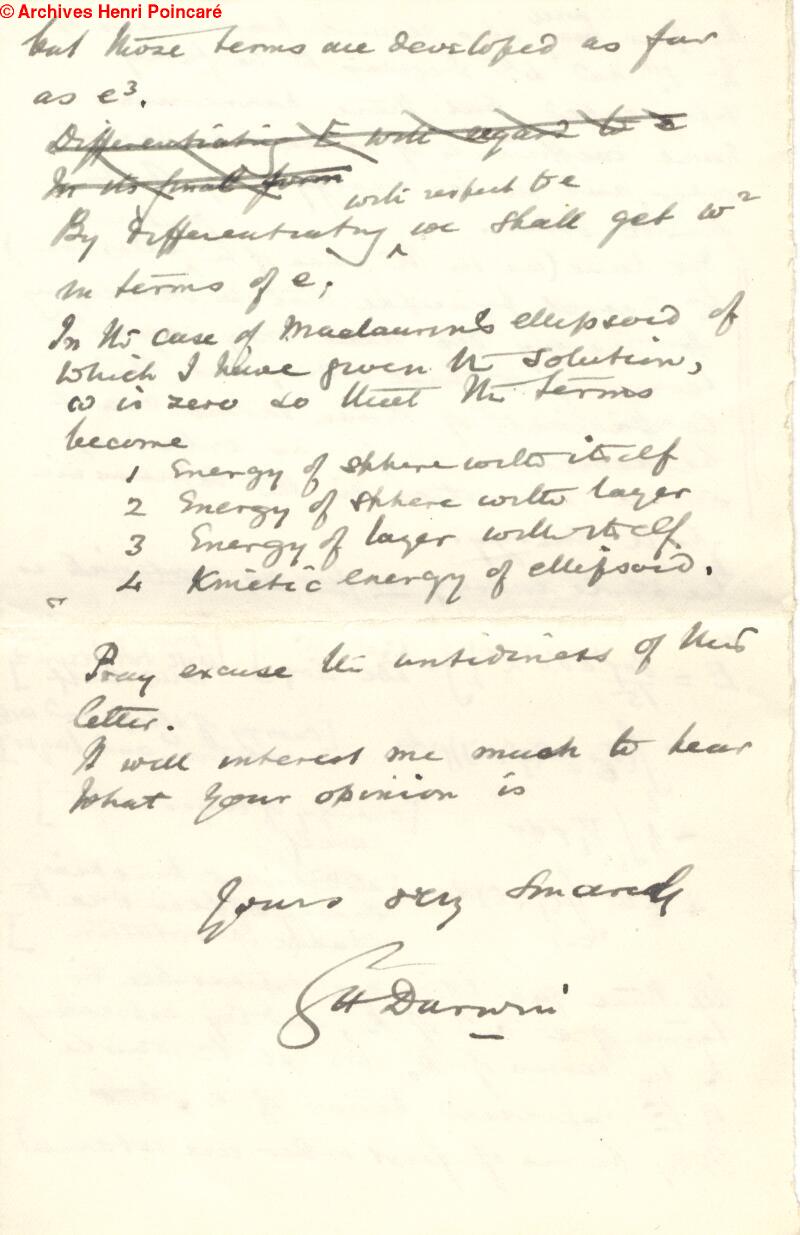 © Archives Henri Poincaré
but those terms are developed as far
as e³.
Differentiating E with regard to e
In its final form
with respect to e
By differentiating ^ we shall get ω²
in terms of e;
In the case of Maclaurin's ellipsoid of
which I have given the solution,
ω is zero so that the terms
become
1 Energy of sphere with itself
2 Energy of sphere with layer
3 Energy of layer with itself
4 Kinetic energy of ellipsoid.
Pray excuse the untidiness of this
letter.
It will interest me much to hear
what your opinion is
Yours very sincerely
G H Darwin